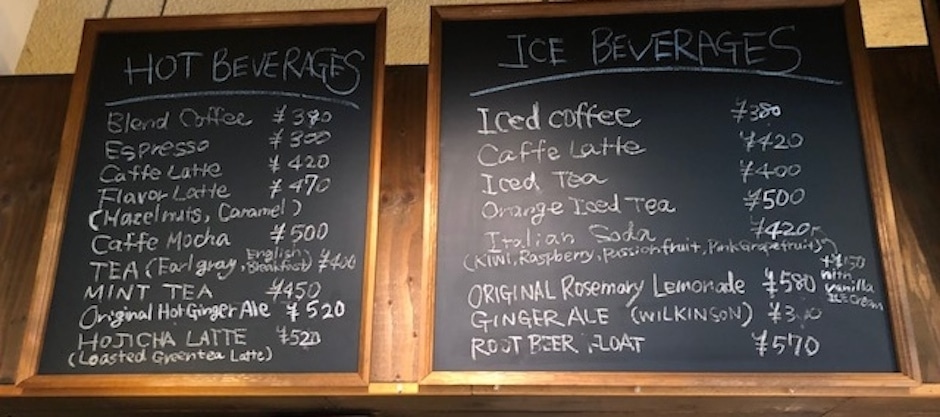 HOT BEVERAGES
Blend Coffee ¥380
Espresso ¥300
Caffe Latte ¥420
Flavor Latte ¥470
(Hazelnuts, Caramel)
Caffe Mocha ¥500
TEA (Earl gray, English Breakfast) ¥400
MINT TEA ¥450
Original Hot Ginger Ale ¥520
HOJICHA LATTE ¥520
(Loasted Greentea Latte)
ICE BEVERAGES
Iced coffee ¥380
Caffe Latte ¥420
Iced Tea ¥400
Orange Iced Tea ¥500
Italian Soda ¥420
(KIWI, Raspberry, Passionfruit, Pink Grapefruits)
+¥150
with
Vanilla
ICE Cream
ORIGINAL Rosemary Lemonade ¥580
GINGER ALE (WILKINSON)
ROOT BEER FLOAT ¥570